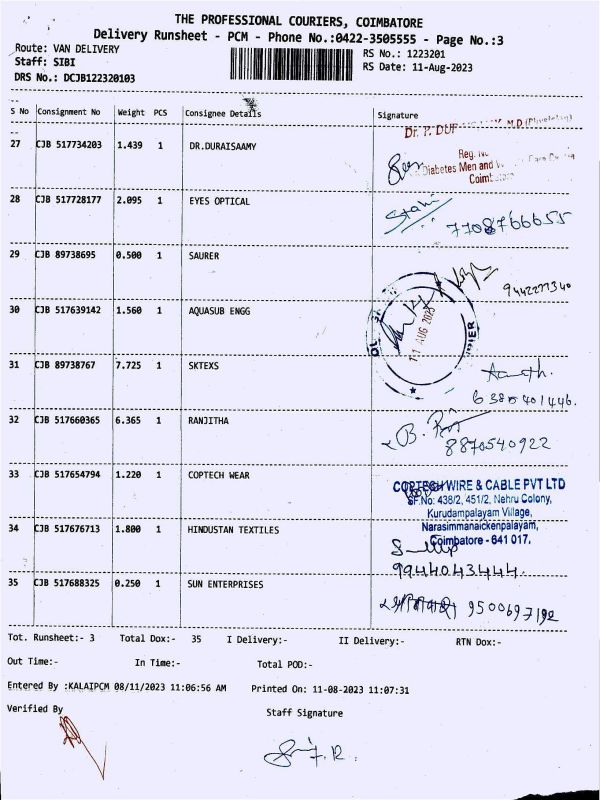 THE PROFESSIONAL COURIERS, COIMBATORE
Delivery Runsheet - PCM - Phone No.:0422-3505555 - Page No.:3
Route: VAN DELIVERY
RS No.: 1223201
Staff: SIBI
RS Date: 11-Aug-2023
DRS No.: DCJB122320103
S No Consignment No Weight PCS Consignee Details Signature
Dr. P. M.D
27 CJB 517734203 1.439 1 DR.DURAISAAMY
Reg.
Diabetes Men and
28 CJB 517728177 2.095 1 EYES OPTICAL
7708766655
29 CJB 89738695 0.500 1 SAURER
9442277340
30 CJB 517639142 1.560 1 AQUASUB ENGG
11 AUG 2023
31 CJB 89738767 7.725 1 SKTEXS
32 CJB 517660365 6.365 1 RANJITHA
B.
8870540922
33 CJB 517654794 1.220 1 COPTECH WEAR
COPTECH WIRE & CABLE PVT LTD
SF.No: 438/2, 451/2, Nehru Colony,
Kurudampalayam Village,
Narasimmanaickenpalayam,
Coimbatore - 641 017.
34 CJB 517676713 1.800 1 HINDUSTAN TEXTILES
9944043444.
35 CJB 517688325 0.250 1 SUN ENTERPRISES
9500697192
Tot. Runsheet:- 3 Total Dox:- 35 I Delivery:- II Delivery:- RTN Dox:-
Out Time:- In Time:- Total POD:-
Entered By :KALAIPCM 08/11/2023 11:06:56 AM Printed On: 11-08-2023 11:07:31
Verified By Staff Signature